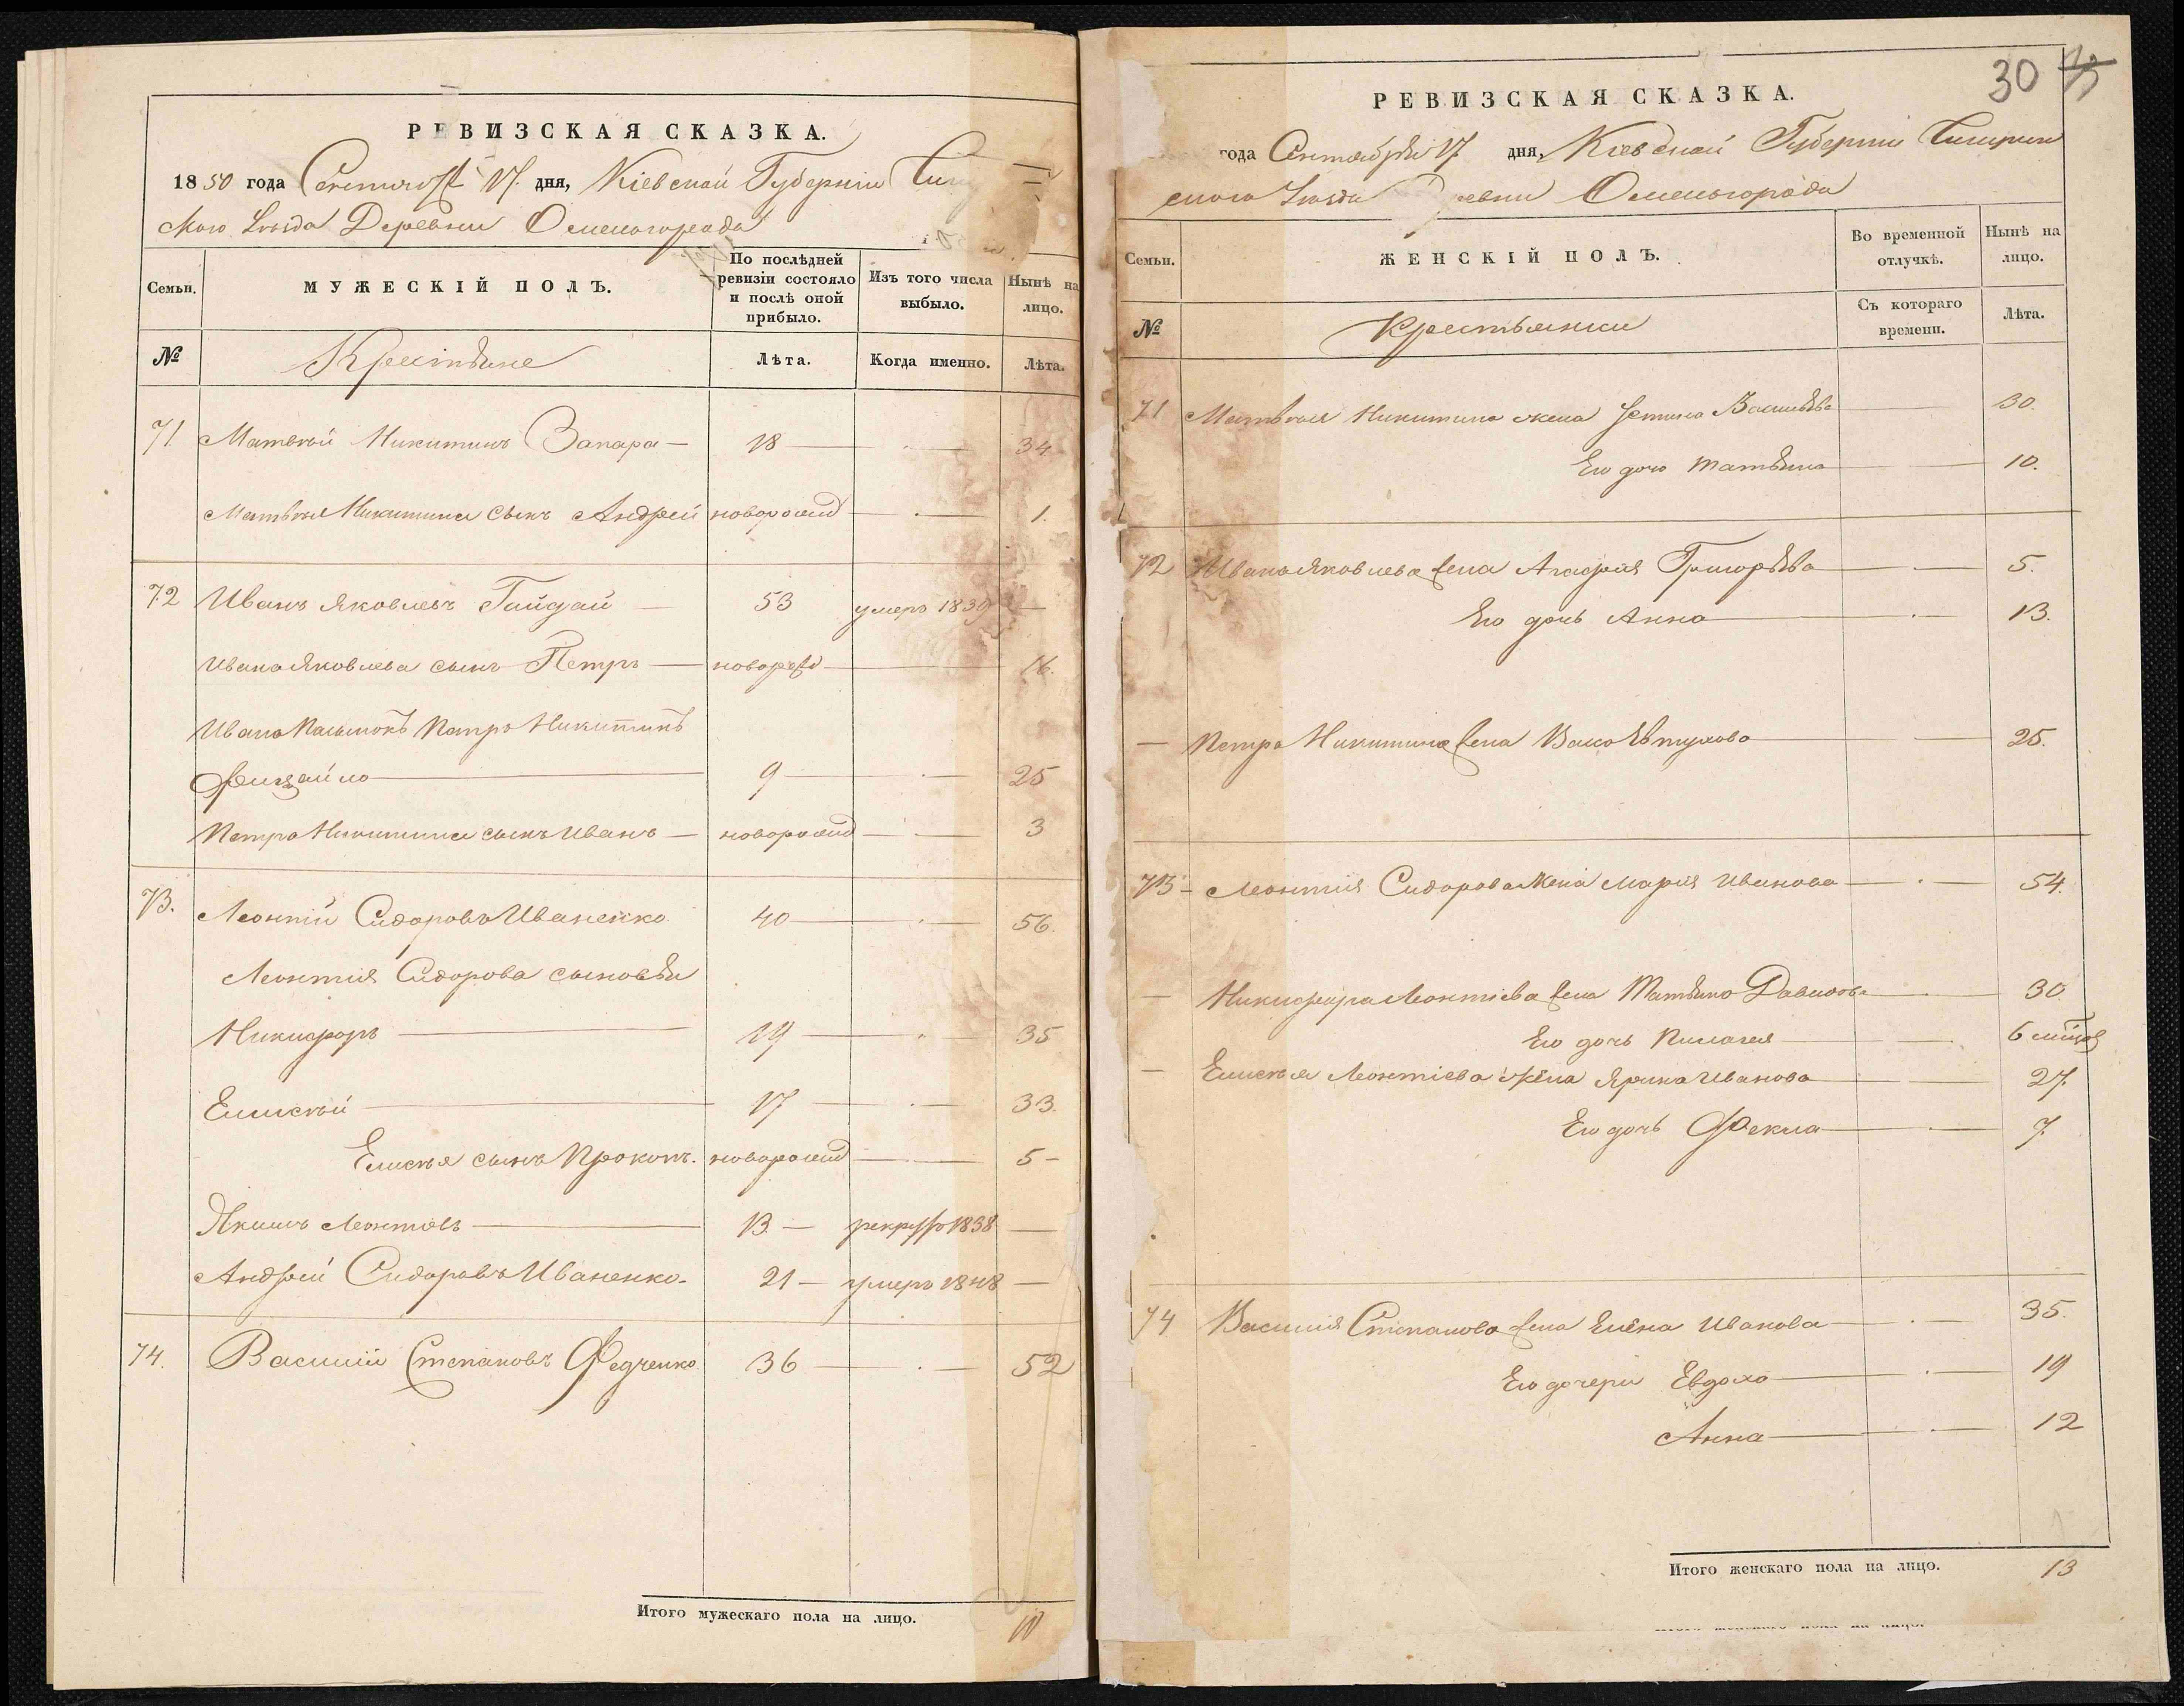 РЕВИЗСКАЯ СКАЗКА.
1850 года 17. дня, Кіевской Губерніи Чиги
ского Уѣзда Деревни Осеногорода
Семьи.
МУЖЕСКІЙ ПОЛЪ.
По послѣдней ревизіи состояло и послѣ оной прибыло.
Изъ того числа выбыло.
Нынѣ на лицо.
№
Крестьяне
Лѣта.
Когда именно.
Лѣта.
71 Матвѣй Никитинъ Запара — 18 — 34
Матвѣя Никитина сынъ Андрей новорожд — 1.
72 Иванъ Яковлевъ Гайдай — 53 умеръ 1839 —
Ивана Яковлева сынъ Петръ — новорожд — 16.
Ивана Пасынокъ Петръ Никитинъ
9 — 25
Петра Никитина сынъ Иванъ — новорожд — 3
73. Леонтій Сидоровъ Иваненко 40 — 56.
Леонтія Сидорова сыновья
Никифоръ — 19 — 35
Елисѣй — 17 — 33.
Елисѣя сынъ Прокопъ. новорожд — 5 —
Якимъ Леонтіевъ — 13 — рекрут 1838 —
Андрей Сидоровъ Иваненко — 21 — умеръ 1848 —
74. Василій Степановъ Федченко 36 — 52
Итого мужескаго пола на лицо. 10
30
РЕВИЗСКАЯ СКАЗКА.
года Сентября 17 дня, Кіевской Губерніи Чигирин
ского Уѣзда евни Осеногорода
Семьи.
ЖЕНСКІЙ ПОЛЪ.
Во временной отлучкѣ.
Нынѣ на лицо.
№
Крестьянки
Съ котораго времени.
Лѣта.
71 Матвѣя Никитина жена Васильева — 30.
Его дочь Татьяна — 10.
72 Ивана Яковлева жена Агафія Григорьева — 5.
Его дочь Анна — 13.
— Петра Никитина жена Васа Явтухова — 25.
73 — Леонтія Сидорова жена Марія Иванова — 54.
— Никифора Леонтіева жена Татьяна Давидова — 30
Его дочь Пилагея — 6 мѣсяцов
— Елисѣя Леонтіева жена Ярина Иванова — 27.
Его дочь Фекла — 7.
74 Василія Степанова жена Елена Иванова — 35.
Его дочери Евдоха — 19
Анна — 12
Итого женскаго пола на лицо. 13